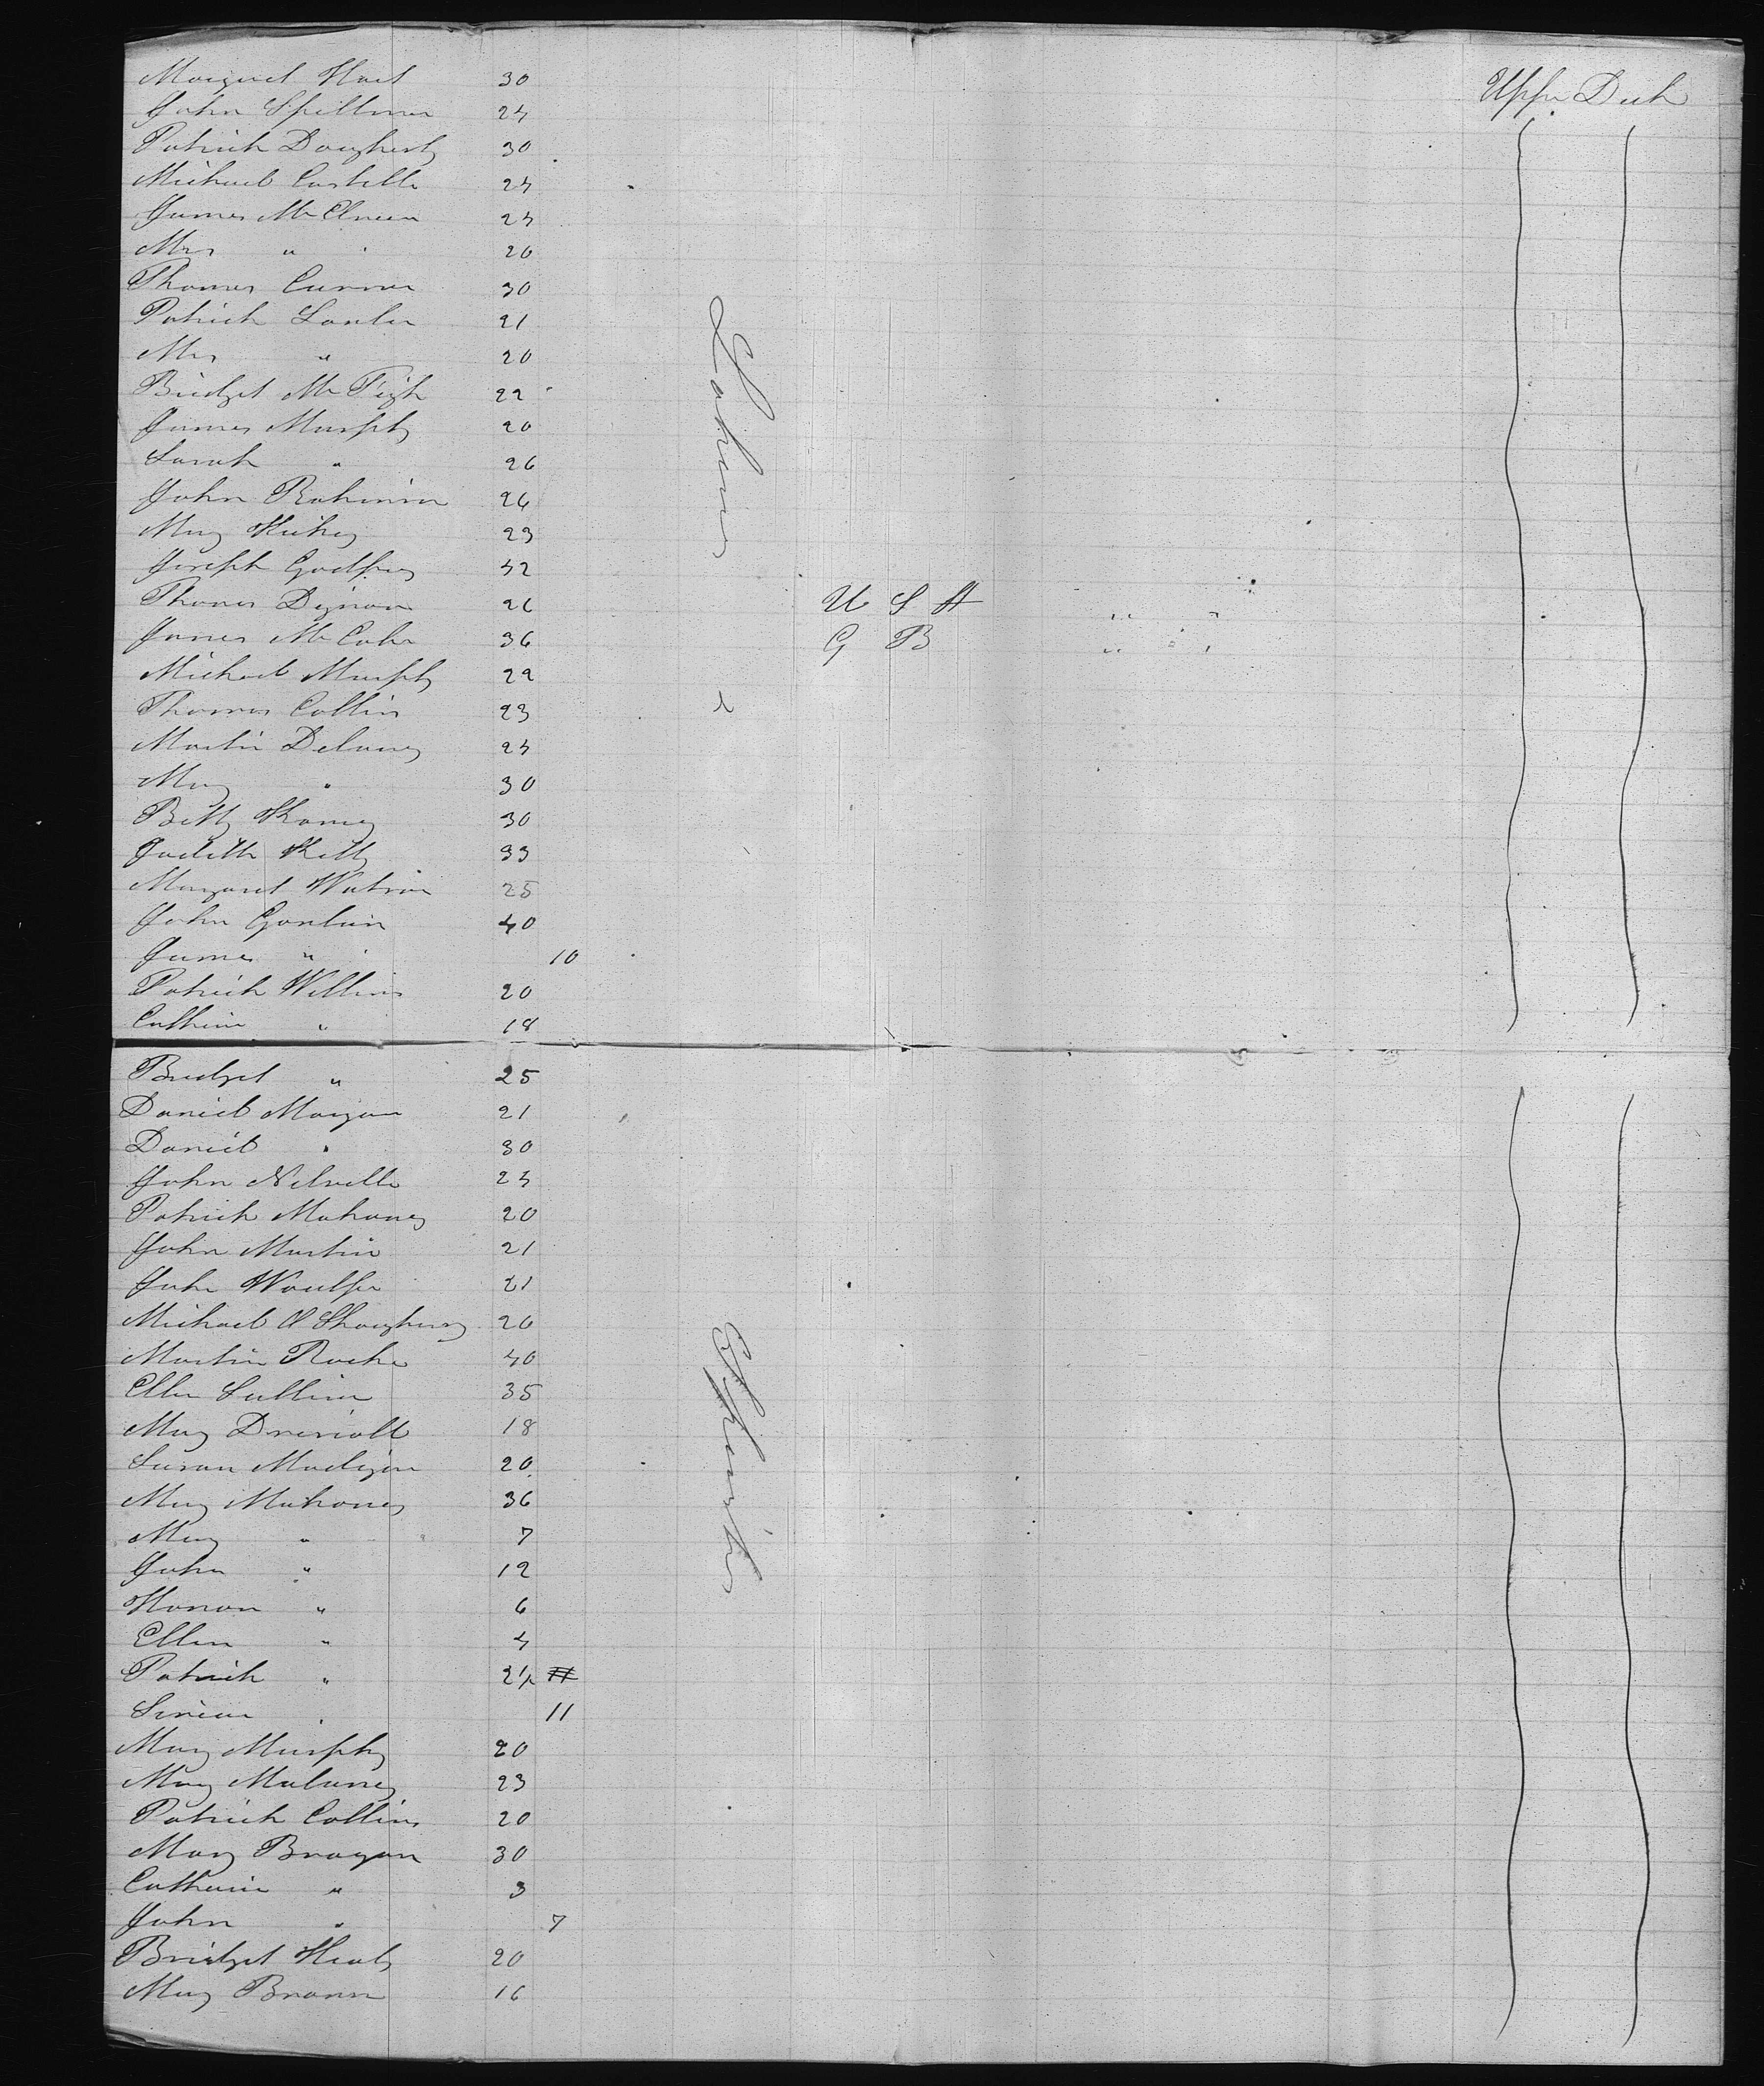 Upper Deck
Margaret Hart 30
John Spillman 24
Patrick Dougherty 30
Michael Costello 24
James McElween 24
Mrs " 20
Thomas Curran 30
Patrick Lawler 21
Mrs " 20
Bridget McTigh 22
James Murphy 20
Sarah " 26
John Robinson 26
Mary Hickey 23
Joseph Godfrey 42
Thomas Dignan 26 U S A
James McCabe 36 G B
Michael Murphy 22
Thomas Collins 23
Martin Delaney 24
Mary " 30
Betty 30
Judith Kelly 33
Margaret Watson 25
John Conlin 40
James " 10
Patrick Willims 20
Catherine " 18
Laborers
&
Bridget " 25
Daniel Morgan 21
Daniel " 30
John Nelville 24
Patrick Mahoney 20
John Martin 21
John Woulfe 21
Michael O Shaughnesy 20
Martin Roche 40
Ellen Sullivan 35
Mary Driscoll 18
Susan Madigan 20
Mary Mahoney 36
Mary " 7
John " 12
Honon " 6
Ellen " 4
Patrick " 24
Simeon " 11
Mary Murphy 20
Mary Maloney 23
Patrick Collins 20
Mary Brogan 30
Catherine " 3
John " 7
Bridget Healy 20
Mary Brown 16
Spinsters